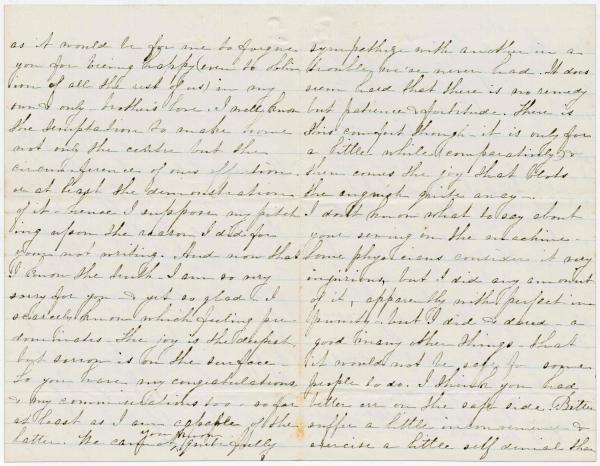 as it would be for me to forgive
you for being happy (even to obliv
ion of all the rest of us) in my
own & only brother's love. I well know
the temptation to make home
not only the centre but the
circumference of ones affection
or at least the demonstration
of it - hence I suppose my pitch
ing upon the reason I did for
your not writing. And now that
I know the truth I am so very
sorry for you - & yet so glad. I
scarcely know which feeling pre
dominates. The joy is the deepest
but sorrow is on the surface -
So you have my congratulations
& my commiserations too - so far
at least as I am capable of the
latter. We cannot you know quite fully
sympathize with another in a
trouble we've never had. It does
seem hard that there is no remedy
but patience & fortitude. There is
this comfort though it is only for
a little while (comparatively) &
then comes the joy that blots
the anguish quite away -
I don't know what to say about
your sewing on the machine -
Some physicians consider it very
injurious, but I did any amount
of it, apparently with perfect im
punity - but I did & dared a
good many other things that
it would not be safe for some
people to do. I think you had
better err on the safe side. Better
suffer a little inconvenience &
exercise a little self denial than